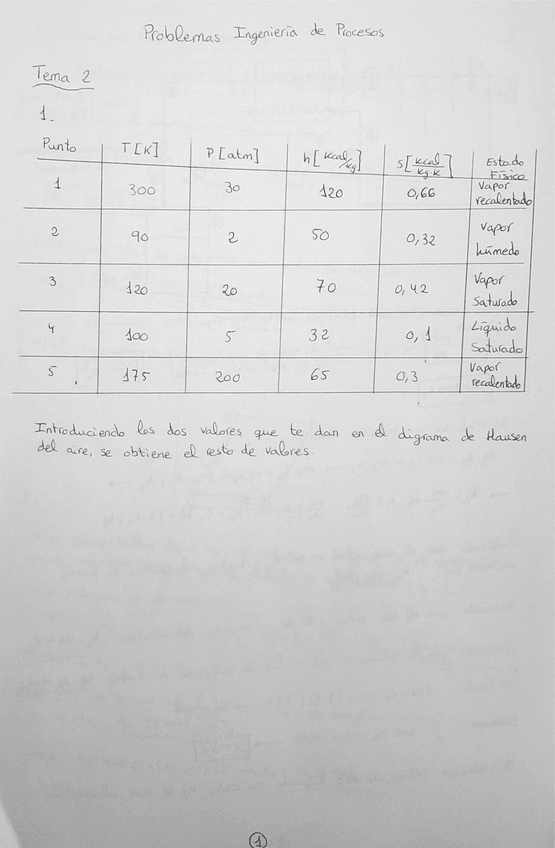 Problemas Ingeniería de Procesos
Tema 2
1.
Punto T [K] P [atm] h [kcal/kg] s [kcal/kg·K] Estado Físico
1 300 30 120 0,66 Vapor recalentado
2 90 2 50 0,32 Vapor húmedo
3 120 20 70 0,42 Vapor Saturado
4 100 5 32 0,1 Líquido Saturado
5 175 200 65 0,3 Vapor recalentado
Introduciendo los dos valores que te dan en el digrama de Hausen
del aire, se obtiene el resto de valores.
1